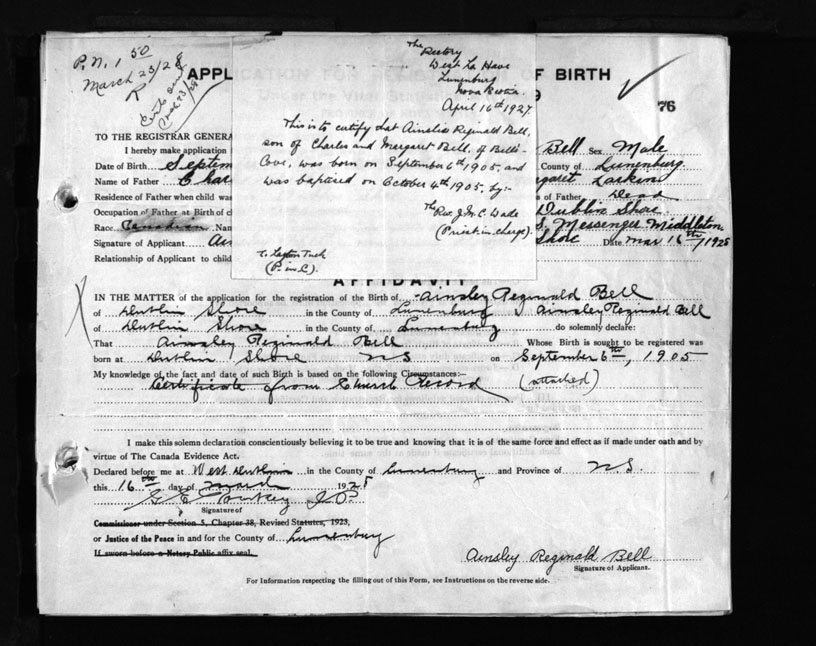 P.N. 1 50
March 23/28
APPL
OF BIRTH
9
76
The Rectory
West La Have
Lunenburg
Nova Scotia.
April 16th 1927.
This is to certify that Ainslie Reginald Bell,
son of Charles and Margaret Bell, of Bell's
Cove, was born on September 6th 1905, and
was baptised on October 4th 1905, by:-
The Rev. J. M. C. Wade
(Priest in charge).
(P. in C.).
TO THE REGISTRAR GENERA
I hereby make application
Bell Sex Male
Date of Birth Septem
County of Lunenburg
Name of Father Char
garet Larkin
Residence of Father when child was
s of Father Dead
Occupation of Father at Birth of ch
Dublin Shore
Race Canadian Nam
S. Messenger Middleton
Signature of Applicant Ain
Shore Date Mar 16th/1928
Relationship of Applicant to child
AFFIDAVIT
IN THE MATTER of the application for the registration of the Birth of Ainsley Reginald Bell
of Dublin Shore in the County of Lunenburg I Ainsley Reginald Bell
of Dublin Shore in the County of Lunenburg do solemnly declare:
That Ainsley Reginald Bell Whose Birth is sought to be registered was
born at Dublin Shore NS on September 6th, 1905
My knowledge of the fact and date of such Birth is based on the following Circumstances:—
Certificate from Church Record (attached)
I make this solemn declaration conscientiously believing it to be true and knowing that it is of the same force and effect as if made under oath and by
virtue of The Canada Evidence Act.
Declared before me at West Dublin in the County of Lunenburg and Province of N.S.
this 16th day of March 1928
J.P.
Signature of
Commissioner under Section 5, Chapter 38, Revised Statutes, 1923,
or Justice of the Peace in and for the County of Lunenburg
If sworn before a Notary Public affix seal.
Ainsley Reginald Bell
Signature of Applicant.
For Information respecting the filling out of this Form, see Instructions on the reverse side.